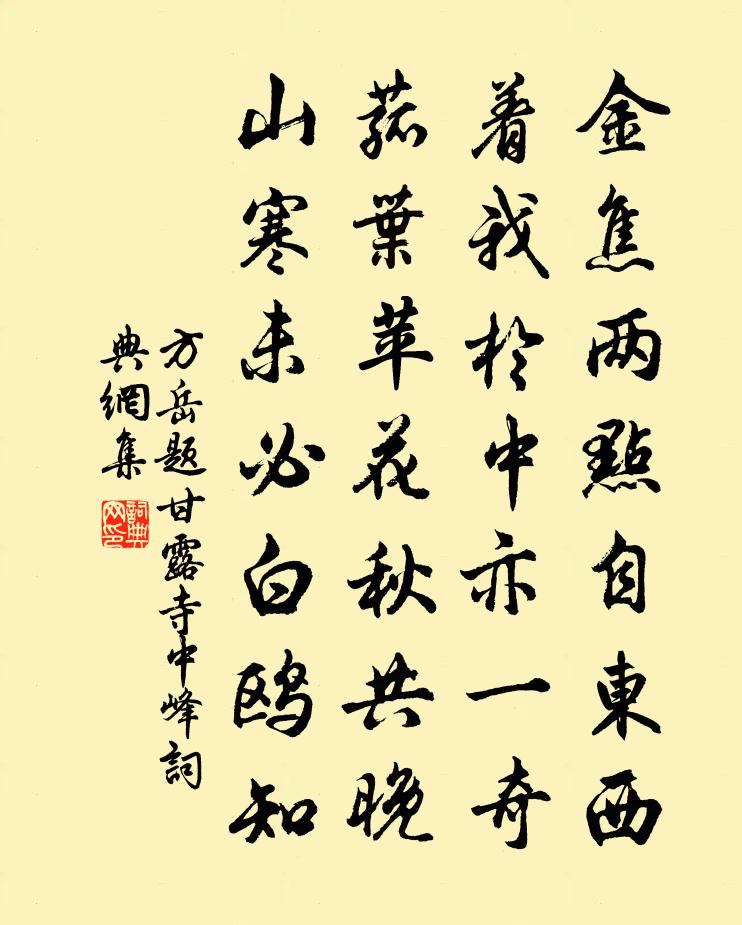 金焦两點自東西
着我於中亦一奇
菰葉苹花秋共晚
山寒未必白鷗知
方岳題甘露寺中峰詞
典網集
詞典
网印